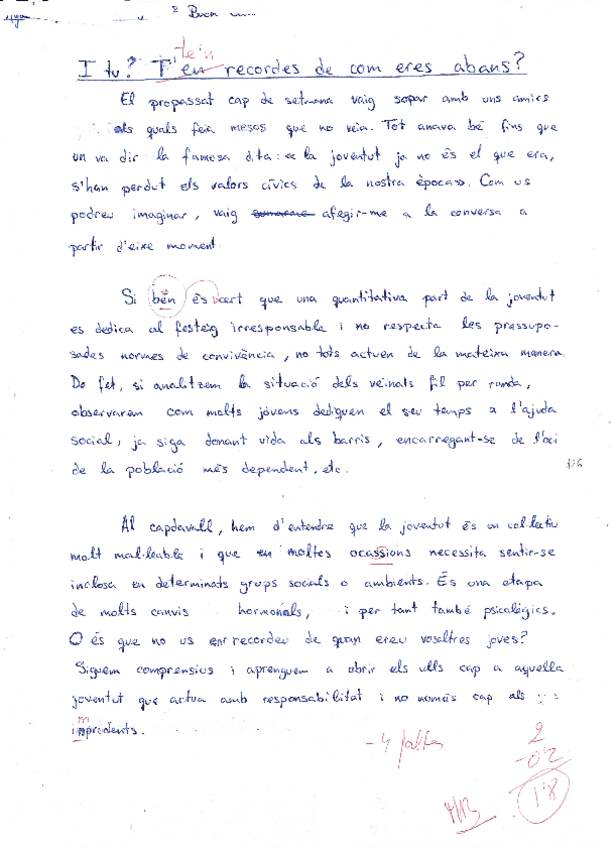 2ⁿ Bach
te'n
I tu? T'en recordes de com eres abans?
El propassat cap de setmana vaig sopar amb uns amics
als quals feia mesos que no veia. Tot anava bé fins que
un va dir la famosa dita: «la joventut ja no és el que era,
s'han perdut els valors cívics de la nostra època». Com us
podreu imaginar, vaig afegir-me a la conversa a
partir d'eixe moment.
Si bén és cert que una quantitativa part de la joventut
es dedica al festeig irresponsable i no respecta les pressupo-
sades normes de convivència, no tots actuen de la mateixa manera.
De fet, si analitzem la situació dels veïnats fil per randa,
observarem com molts jóvens dediquen el seu temps a l'ajuda
social, ja siga donant vida als barris, encarregant-se de l'oci
de la població més dependent, etc.
176
Al capdavall, hem d'entendre que la joventut és un col·lectiu
molt mal·leable i que en moltes ocassions necessita sentir-se
inclosa en determinats grups socials o ambients. És una etapa
de molts canvis hormonals, i per tant també psicològics.
O és que no us en recordeu de quan ereu vosaltres joves?
Siguem comprensius i aprenguem a obrir els ulls cap a aquella
joventut que actua amb responsabilitat i no només cap als
m
inprudents.
-4 faltes
2
-0'2
1'8